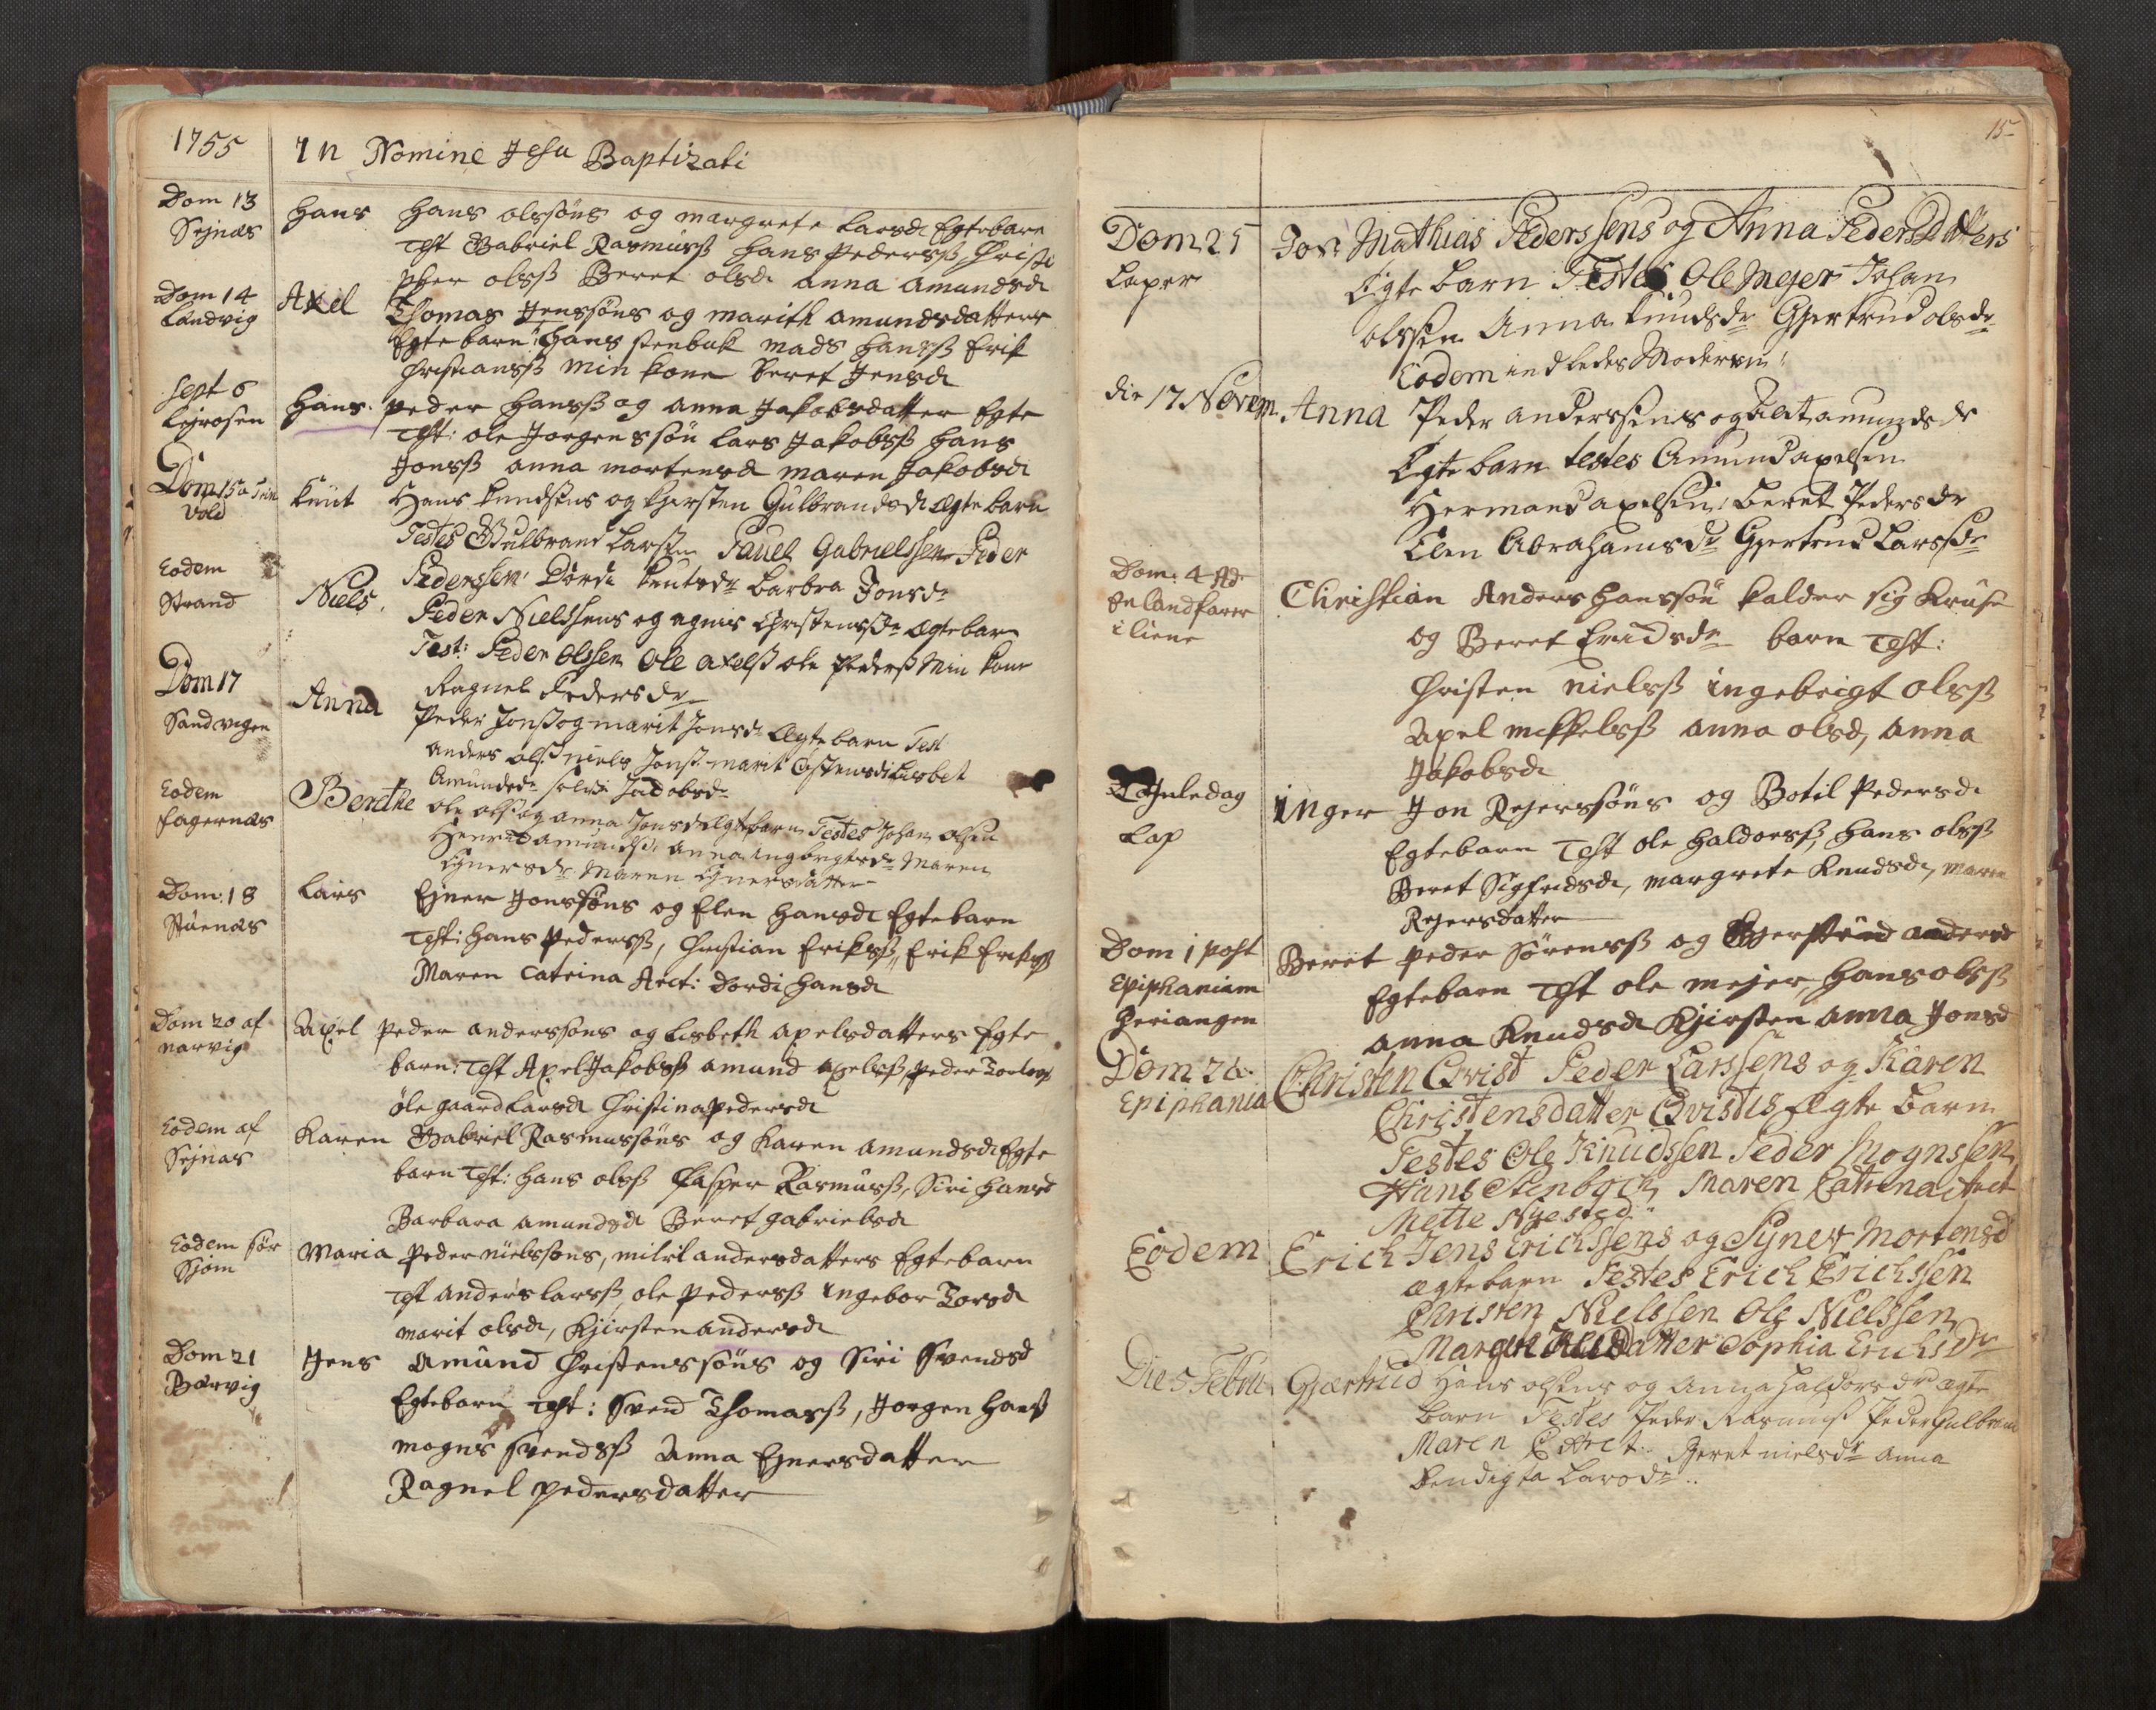 1755
In Nomine Jesu Baptizati
Dom 13
Sejnæs
Hans Hans olssöns og margrete Larsd: Egtebarn
Test Gabriel Rasmusß Hans Pedersß, Christo
pher olsß Beret olsd: anna amundsd:
Dom 14
Landvig
Axel Thomas Jenssöns og marith amundsdatters
Egtebarn: Hans stenbuk mads Hansß Erik
Christiansß min kone Beret Jensd:
Sept 6
Lejrosen
Hans. Peder Hansß og anna Jakobsdatter Egte
Test: ole Jorgenssön Lars Jakobsß Hans
Jonsß anna mortensd: maren Jakobsd:
Dom 15 a Trin
Vold
Knut Hans Knudsens og Kjersten Gulbrandsd: ægte barn
Testes Gulbrand Larssen Pauel Gabrielssen Peder
Pederssen: Dordi Knutsdr Barbra Jonsdr
Eodem
Strand
Niels. Peder Nielssens og agnis Christensdr ægte barn
Test: Peder olssen ole axelsß ole Pedersß Min kone
Ragnel Pedersdr
Dom 17
Sandvigen
Anna Peder Jonsß og marit Jonsd: ægte barn Test
anders olsß niels Jonsß marit Lisbet
amundsdr Jacobsdr
Eodem
Fagernæs
Berethe ole olsß og anna Jonsd ægte barn Testes Johan olsen
Henrich amundsß: anna Ingbrigtsdr Maren
Ejnersdr Maren Ejnersdatter
Dom: 18
Stuenæs
Lars Ejner Jonssöns og Elen Hansd: Egtebarn
Test: Hans Pedersß, Christian Eriksß, Erik Eriksß
Maren Catrina Arct: Dordi Hansd:
Dom 20 af
narvig
Axel Peder anderssöns og Lisbeth axelsdatters Egte
barn: Test Axel Jakobsß amund axelsß, Peder
ole gaard Larsd: Christina Pedersd:
Eodem af
Sejnæs
Karen Gabriel Rasmussöns og Karen amundsd: Egte
barn Test: Hans olsß Casper Rasmusß, Siri Hansd
Barbara amundsd: Beret gabrielsd:
Eodem för
Sjom
Maria Peder nielssöns, milril andersdatters Egtebarn
Test anders Larsß, ole Pedersß Ingebor Torsd:
marit olsd:, Kjirsten andersd:
Dom 21
Bærvig
Jens Amund Christenssöns og Siri Svendsd
Egtebarn Test: Svend Thomasß, Jorgen Hansß
mogns svendsß Anna Ejnersdatter
Ragnel Pedersdatter
15
Dom 25
Laper
Jon Mathias Pederssens og Anna PedersDatters
Egte Barn Testes Ole Mejer Johan
olssen Anna Knudsdr Gjertrud olsdr
Eodem indledes Moderen:
die 17 Novem
Anna Peder anderssens og amundsdr
Egte barn testes Amund axelsen
Hermand axelsen: Beret Pedersdr
Elen Abrahamsdr Gjertrud Larssdr
Dom: 4 Ad
En landfarer
i liene
Christian Anders Hanssön kalder sig Kruse
og Beret dr barn Test:
Christen nielsß ingebrigt olsß
Axel mikkelsß anna olsd, anna
Jakobsd:
Juledag
Lap
Inger Jon Rejerssöns og Botil Pedersd:
Egtebarn Test ole Haldorsß, Hans olsß
Beret Sigfridsd:, margrete Knudsd:, maren
Rejersdatter
Dom 1 post
Epiphaniam
Herjangen
Beret Peder Sörensß og andersd
Egtebarn Test ole mejer, Hans olsß
anna Knudsd: Kjirsten anna Jonsd
Dom 2 a
Epiphania
Christen Qvist Peder Larssens og Karen
Christensdatter Qvistes ægte barn
Testes Ole Knudssen Peder Mognssen
Hans Stenboch Maren Catrina Arct
Mette Nyested
Eodem
Erich Jens Erichssens og Synev Mortensd
ægte barn Testes Erich Erichssen
Christen Nielssen Ole Nielssen
Margret Datter Sophia Erichsdr
Die 5 Febru
Gjærtrud Hans olsens og anna Haldorsdr ægte
barn Testes Peder Rasmusß Peder Gulbran
Maren C Arct. Beret nielsdr anna
bendigta Larsdr